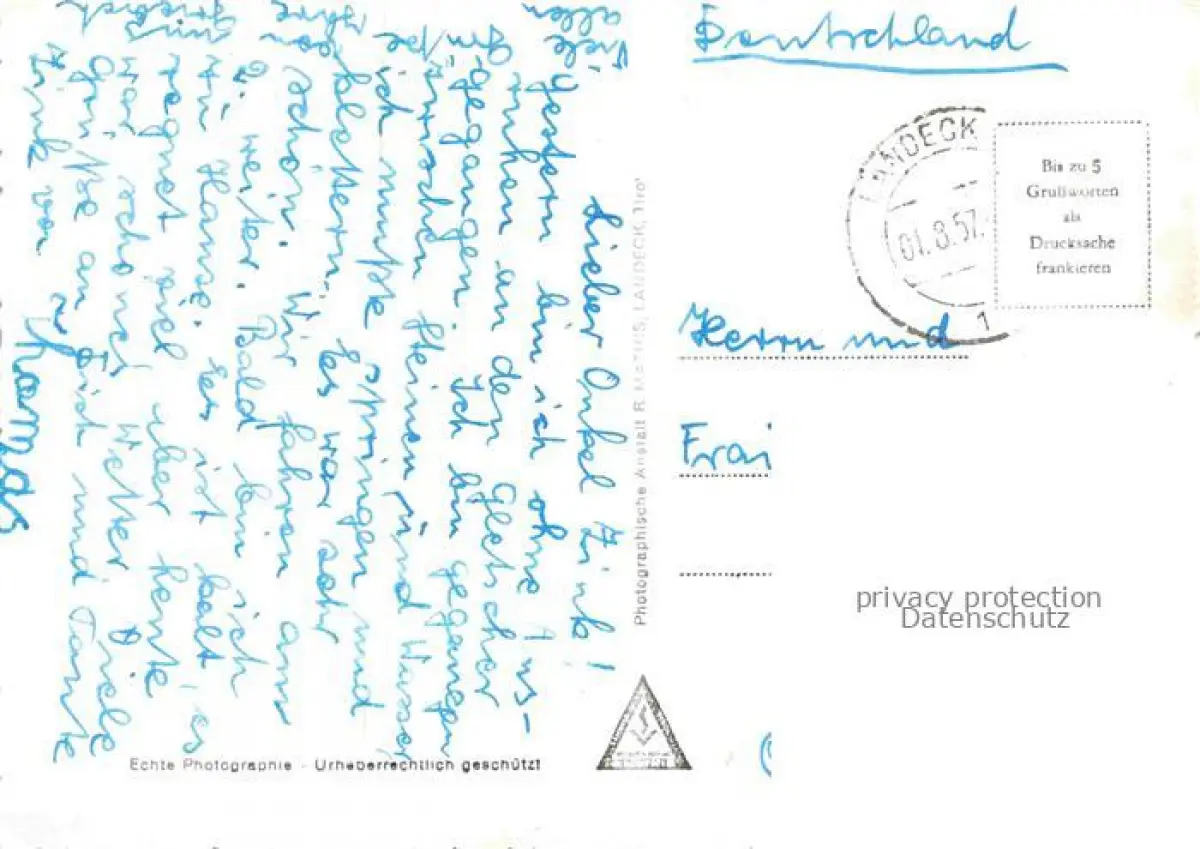 Deutschland
LANDECK
01.8.57.
1
Bis zu 5
Grußworten
als
Drucksache
frankieren
Herrn und
Lieber Onkel Zink!
Gestern bin ich ohne Aus-
ruhen an den Gletscher
gegangen. Ich bin gegangen
zwischen Steinen und Wasser
ich mußte springen und
klettern. Es war sehr
schön. Wir fahren am
2. weiter. Bald bin ich
zu Hause. Es ist kalt, es
regnet viel aber heute
war schönes Wetter. Viele
Grüße an Dich und Tante
Zink von
Thomas
Viele
Grüße
allen
Photographische Anstalt R. MATHIS, LANDECK, Tirol
Echte Photographie - Urheberrechtlich geschützt
privacy protection
Datenschutz